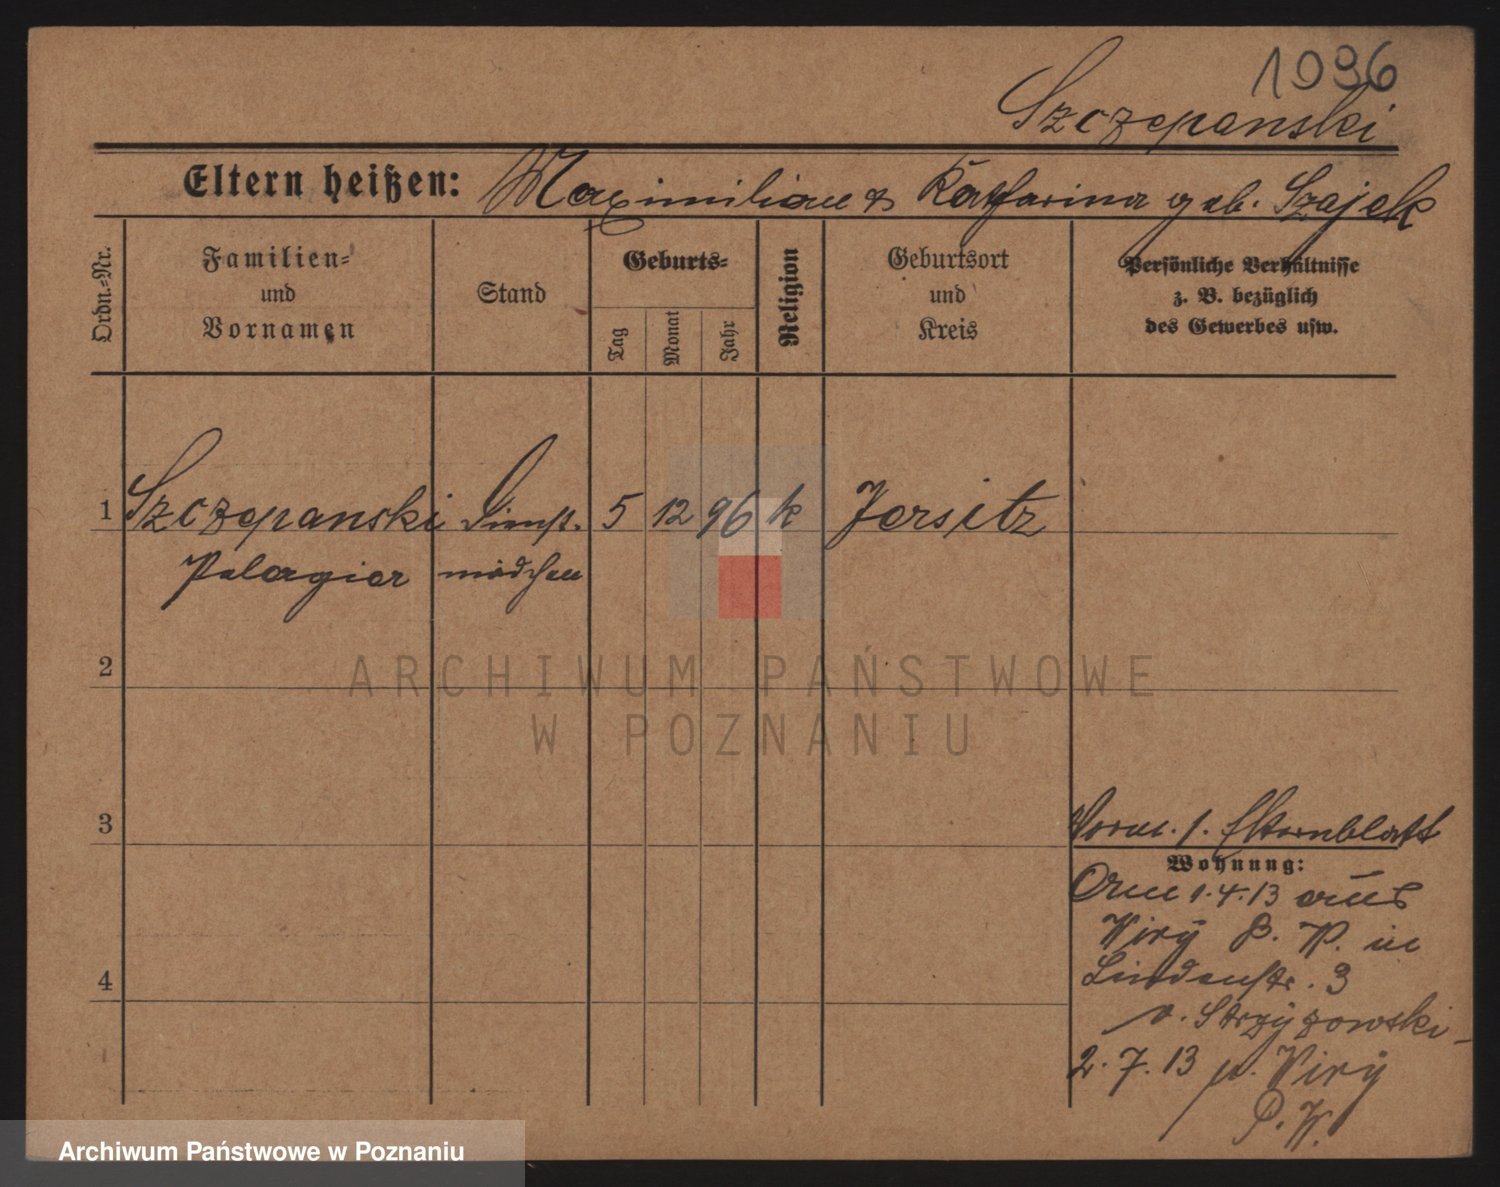 1096
Szczepanski
Eltern heißen: Maximilian & Katharina geb. Szajek
Ordn.-Nr.
Familien-
und
Vornamen
Stand
Geburts-
Tag
Monat
Jahr
Religion
Geburtsort
und
Kreis
Persönliche Verhältnisse
z. B. bezüglich
des Gewerbes usw.
1 Szczepanski Dienst- 5 12 96 k Jersitz
Pelagia mädchen
2
ARCHIWUM PAŃSTWOWE
W POZNANIU
3
4
Vorm. s. Elternblatt
Wohnung:
Am 1.4.13 aus
Wiry P. W. in
Lindenstr. 3
v. Strzyzowski
2.7.13 n. Wiry
P. W.
Archiwum Państwowe w Poznaniu